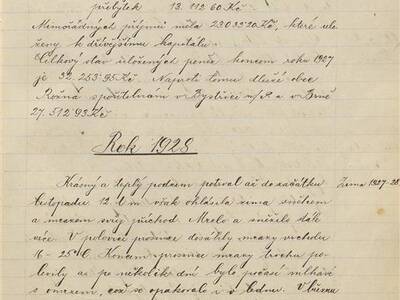 přebytek 13.112.60 Kč
Mimořádných příjmů měla 23033.20 Kč, které ulo
ženy k dřívějšímu kapitálu.
Celkový stav uložených peněz koncem roku 1927
je 32.253.95 Kč. Naproti tomu dluží obec
Rožná spořitelnám v Bystřici n/P. a v Brně
27.512.93 Kč
Rok 1928
Krásný a teplý podzim potrval až do začátku
Zima 1927-28.
listopadu. 12. t.m. však ohlásila zima sněhem
a mrazem svůj příchod. Mrzlo a sněžilo dále
více. V polovici prosince dosáhly mrazy vrcholu
16-25°C. Koncem prosince mrazy trochu po
levily až po několik dní bylo počasí mlhavé
s omrzem, což se opakovalo i v lednu. V březnu